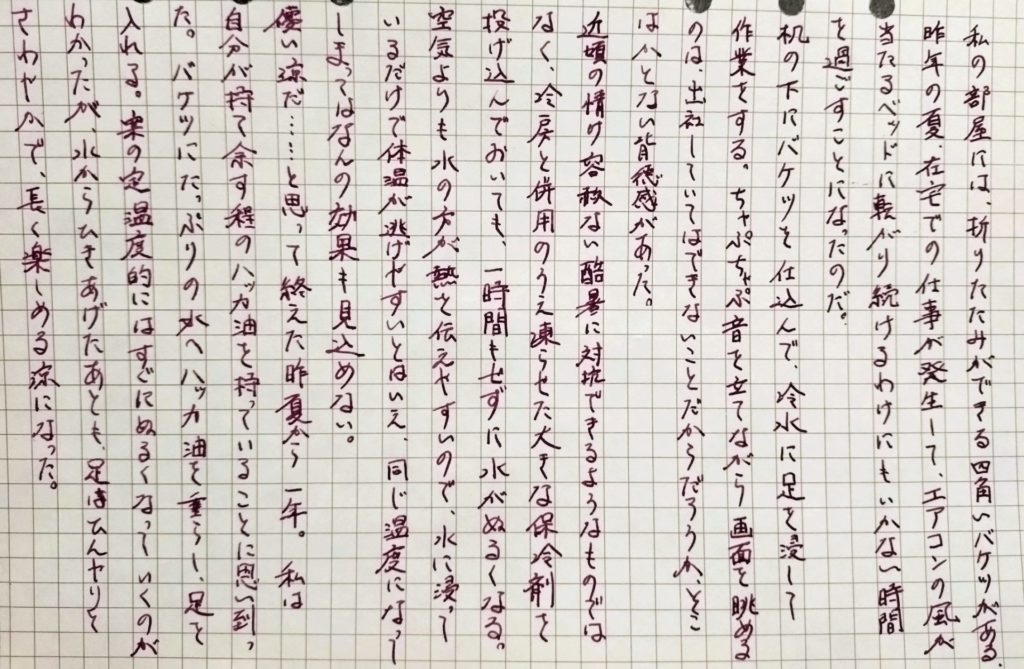 私の部屋には、折りたたみができる四角いバケツがある。
昨年の夏、在宅での仕事が発生して、エアコンの風が
当たるベッドに転がり続けるわけにもいかない時間
を過ごすことになったのだ。
机の下にバケツを仕込んで、冷水に足を浸して
作業をする。ちゃぷちゃぷ音を立てながら画面を眺める
のは、出社していてはできないことだからだろうか、そこ
はかとない背徳感があった。
近頃の情け容赦ない酷暑に対抗できるようなものでは
なく、冷房と併用のうえ凍らせた大きな保冷剤を
投げ込んでおいても、一時間もせずに水がぬるくなる。
空気よりも水の方が熱を伝えやすいので、水に浸って
いるだけで体温が逃げやすいとはいえ、同じ温度になって
しまってはなんの効果も見込めない。
儚い涼だ……と思って終えた昨夏から一年。私は
自分が持て余す程のハッカ油を持っていることに思い到っ
た。バケツにたっぷりの水へハッカ油を垂らし、足を
入れる。案の定温度的にはすぐにぬるくなっていくのが
わかったが、水からひきあげたあとも、足はひんやりと
さわやかで、長く楽しめる涼になった。